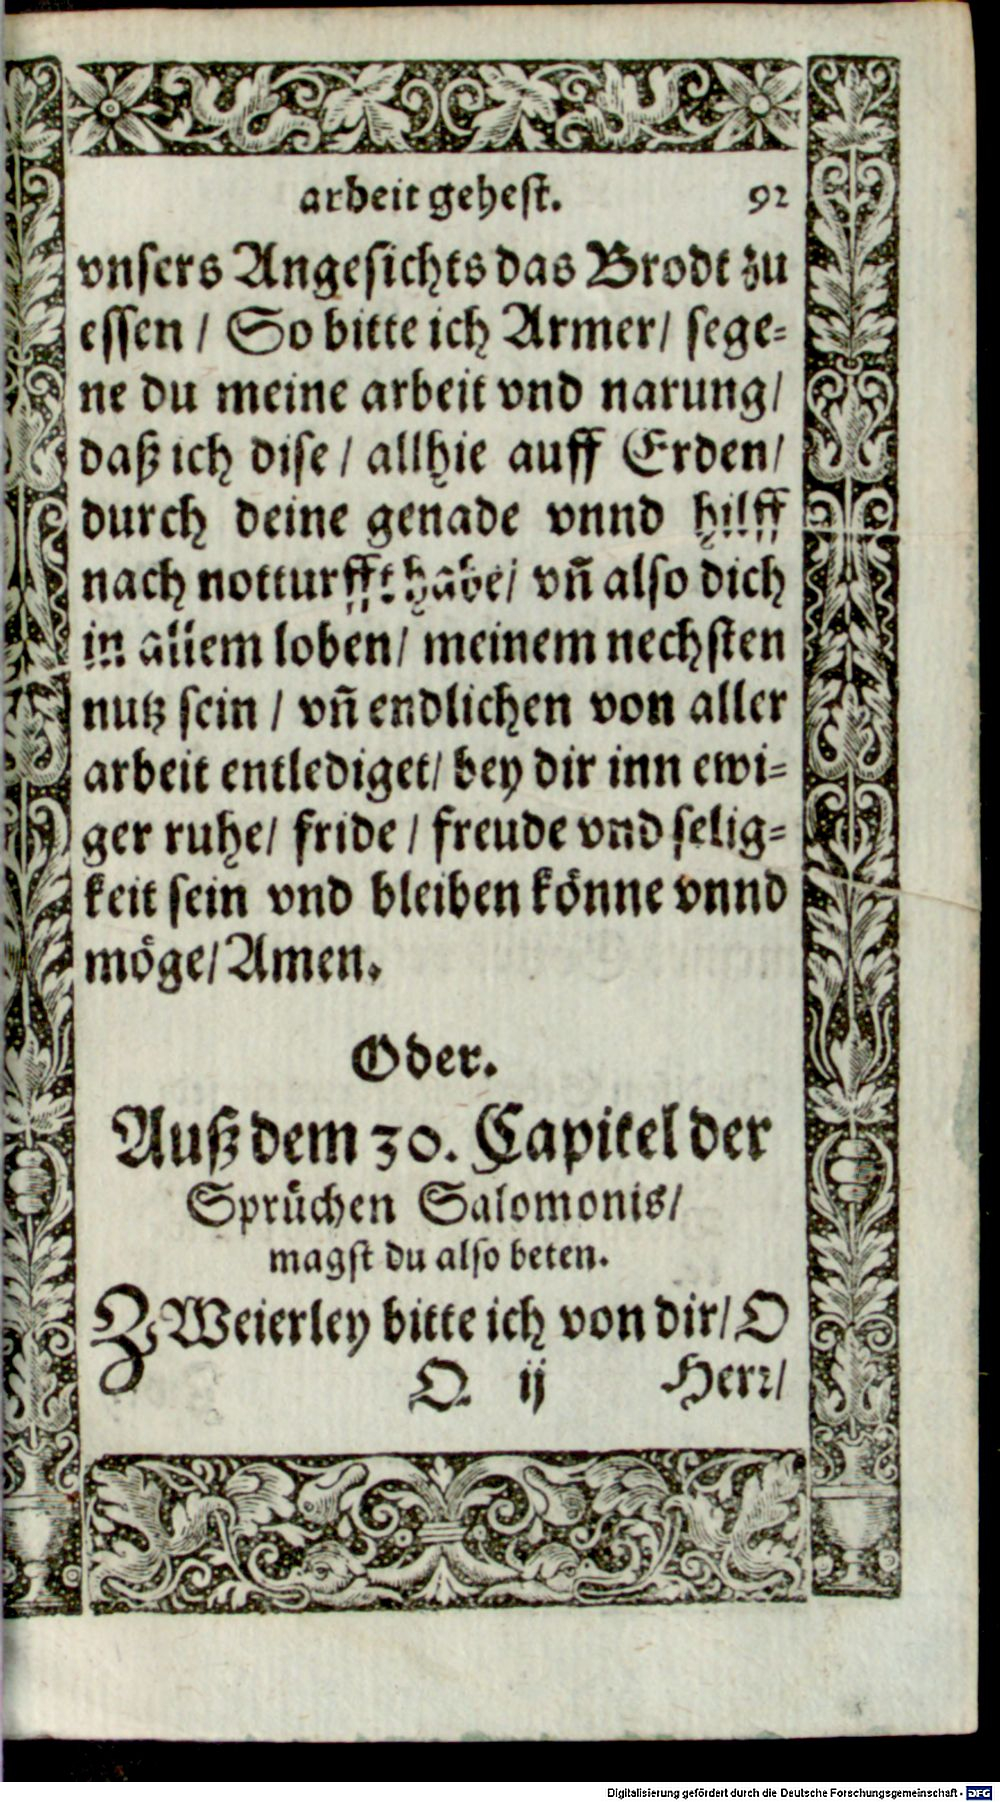 arbeit gehest. 92
vnsers Angesichts das Brodt zu
essen / So bitte ich Armer / sege=
ne du meine arbeit vnd narung /
daß ich dise / allhie auff Erden /
durch deine genade vnnd hilff
nach notturfft habe / vñ also dich
in allem loben / meinem nechsten
nutz sein / vñ endlichen von aller
arbeit entlediget / bey dir inn ewi=
ger ruhe / fride / freude vnd selig=
keit sein vnd bleiben könne vnnd
möge / Amen.
Oder.
Auß dem 30. Capitel der
Sprüchen Salomonis /
magst du also beten.
ZWeierley bitte ich von dir / O
O ij Herr /
Digitalisierung gefördert durch die Deutsche Forschungsgemeinschaft - DFG